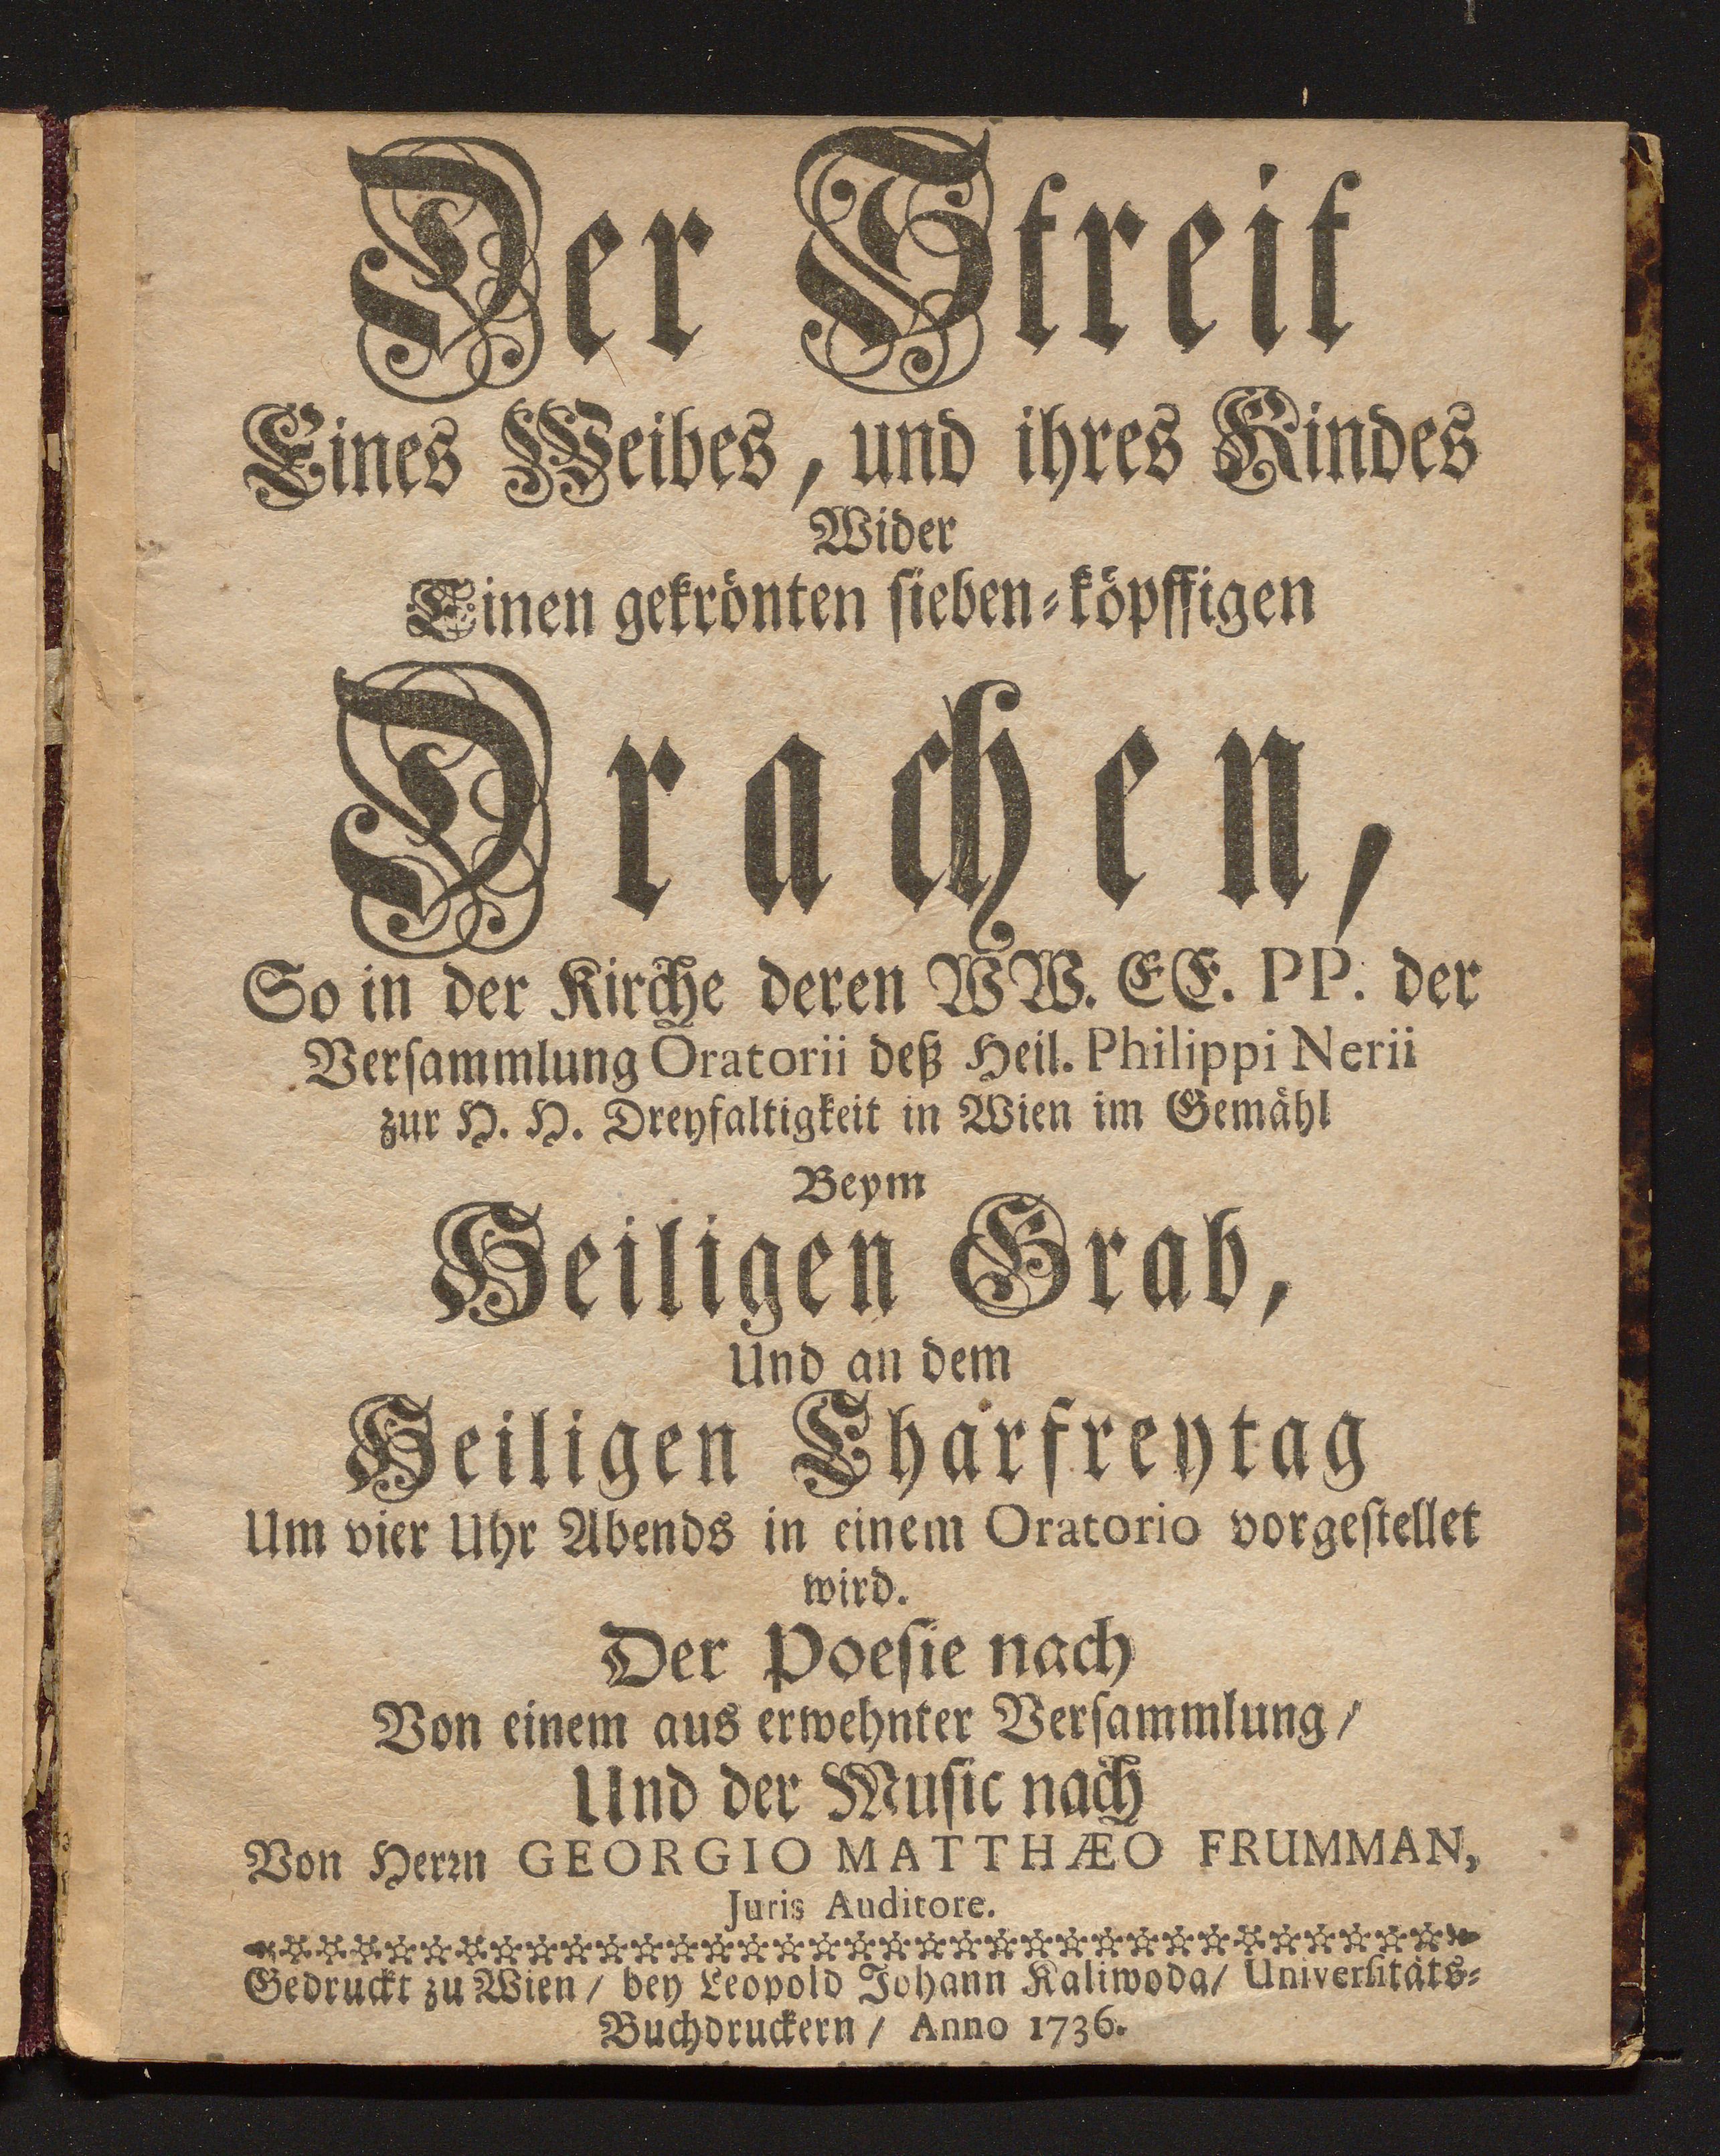 Der Streit
Eines Weibes, und ihres Kindes
Wider
Einen gekrönten sieben-köpffigen
Drachen,
So in der Kirche deren WW. EE. PP. der
Versammlung Oratorii deß Heil. Philippi Nerii
zur H. H. Dreyfaltigkeit in Wien im Gemähl
Beym
Heiligen Grab,
Und an dem
Heiligen Charfreytag
Um vier Uhr Abends in einem Oratorio vorgestellet
wird.
Der Poesie nach
Von einem aus erwehnter Versammlung/
Und der Music nach
Von Herrn GEORGIO MATTHÆO FRUMMAN,
Juris Auditore.
Gedruckt zu Wien/ bey Leopold Johann Kaliwoda/ Universitäts-
Buchdruckern/ Anno 1736.